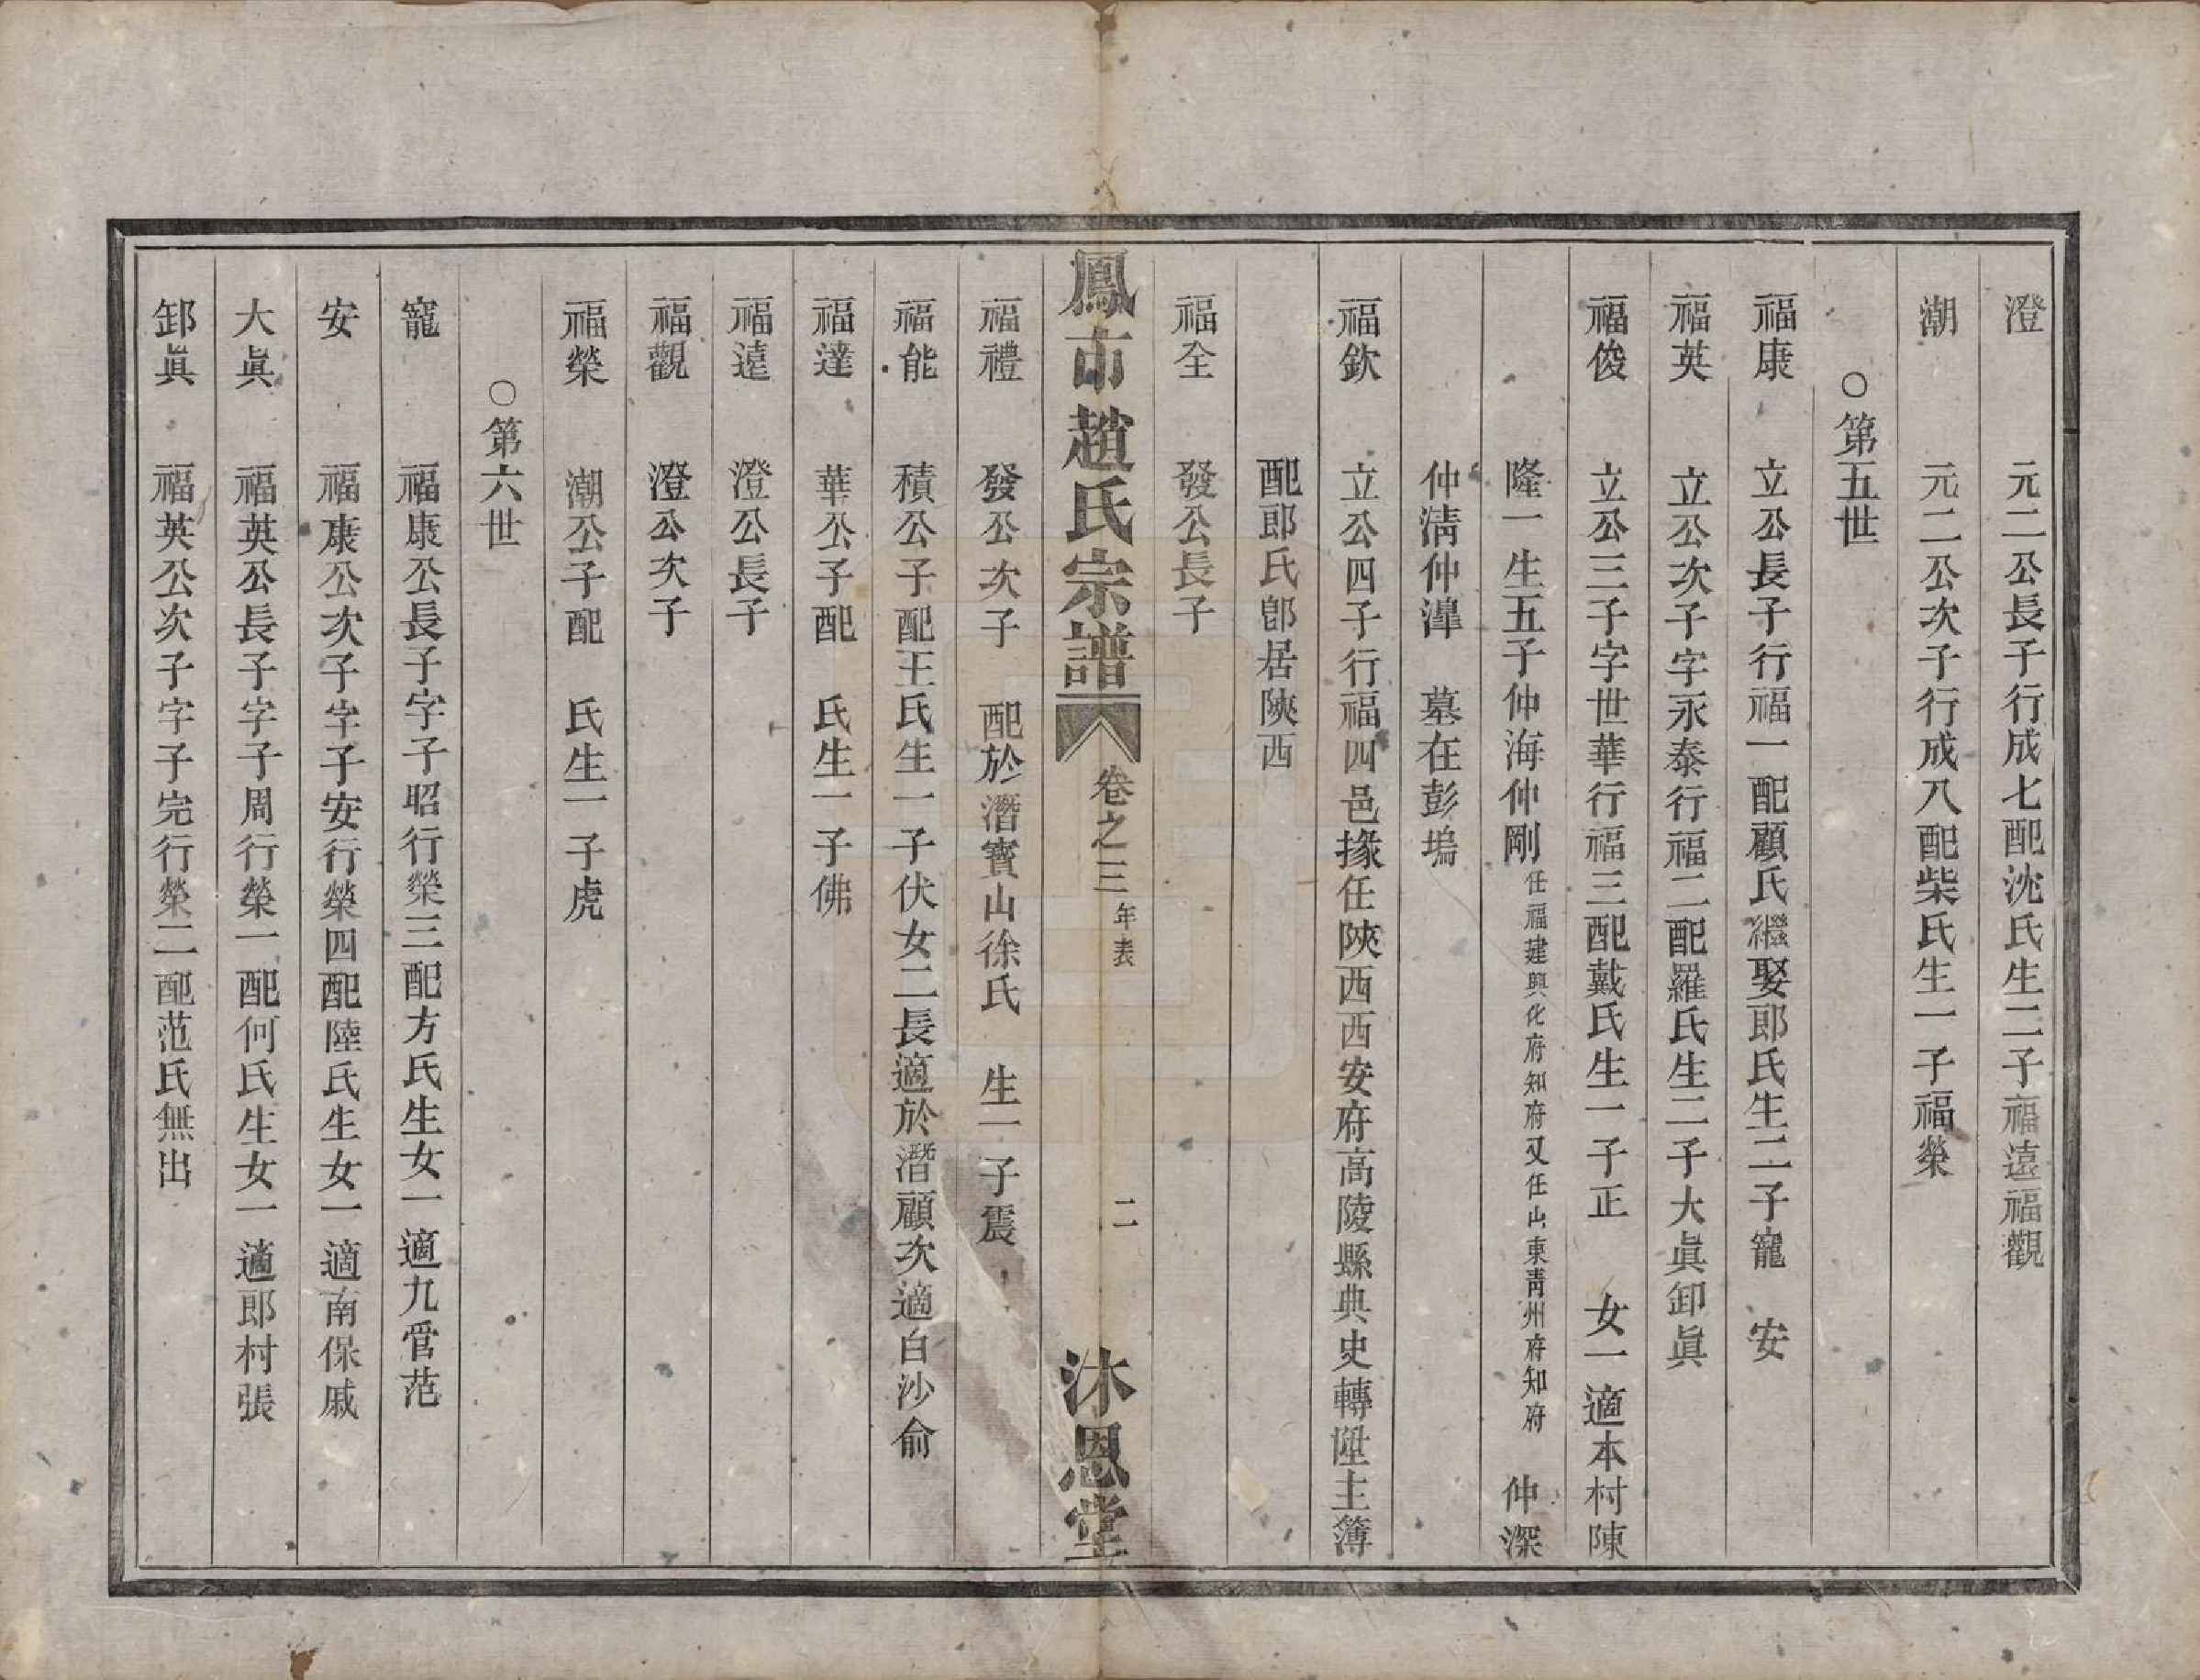 澄　元二公長子行成七配沈氏生二子福遠福觀
潮　元二公次子行成八配柴氏生一子福榮
○第五世
福康　立公長子行福一配顧氏繼娶郎氏生二子寵　安
福英　立公次子字永泰行福二配羅氏生二子大眞卸眞
福俊　立公三子字世華行福三配戴氏生一子正　女一適本村陳
隆一生五子仲海仲剛任福建興化府知府又任山東靑州府知府　仲深
仲淸仲漳　墓在彭塢
福欽　立公四子行福四邑掾任陝西西安府高陵縣典史轉陞主簿
配郎氏卽居陝西
福全　發公長子
鳳市趙氏宗譜　卷之三　年表　二　沐恩堂
福禮　發公次子　配於潛寶山徐氏　生一子震
福能　積公子配王氏生一子伏女二長適於潛顧次適白沙俞
福達　華公子配　氏生一子佛
福遠　澄公長子
福觀　澄公次子
福榮　潮公子配　氏生一子虎
○第六世
寵　福康公長子字子昭行榮三配方氏生女一適九管范
安　福康公次子字子安行榮四配陸氏生女一適南保戚
大眞　福英公長子字子周行榮一配何氏生女一適郎村張
卸眞　福英公次子字子完行榮二配范氏無出